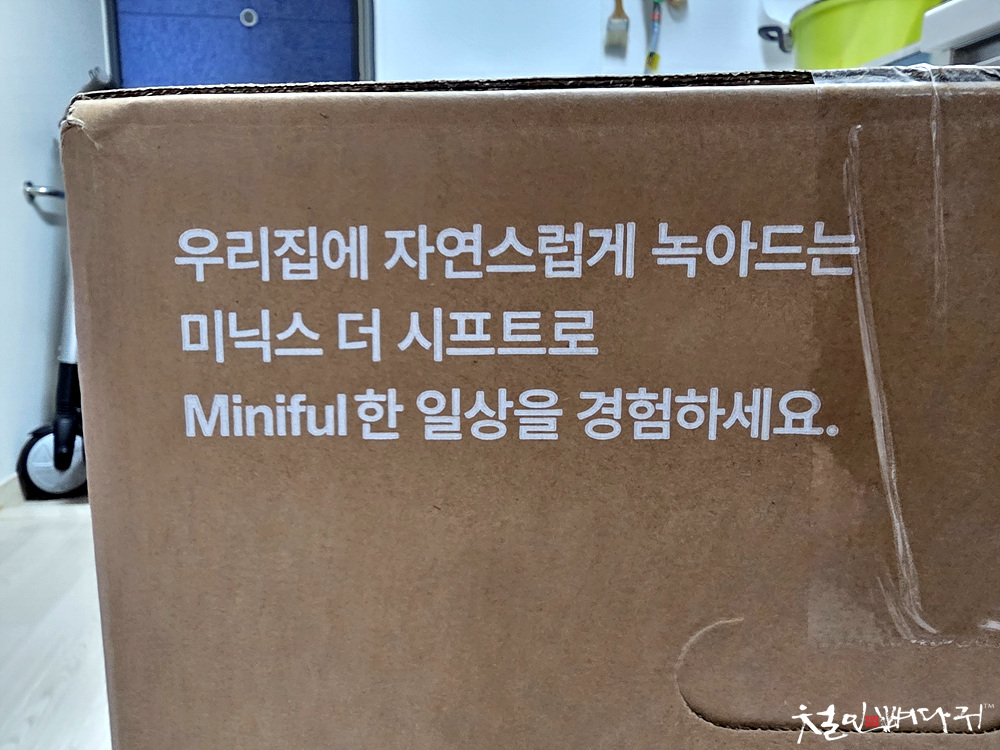 우리집에 자연스럽게 녹아드는
미닉스 더 시프트로
Miniful한 일상을 경험하세요.
철인뼈다귀™